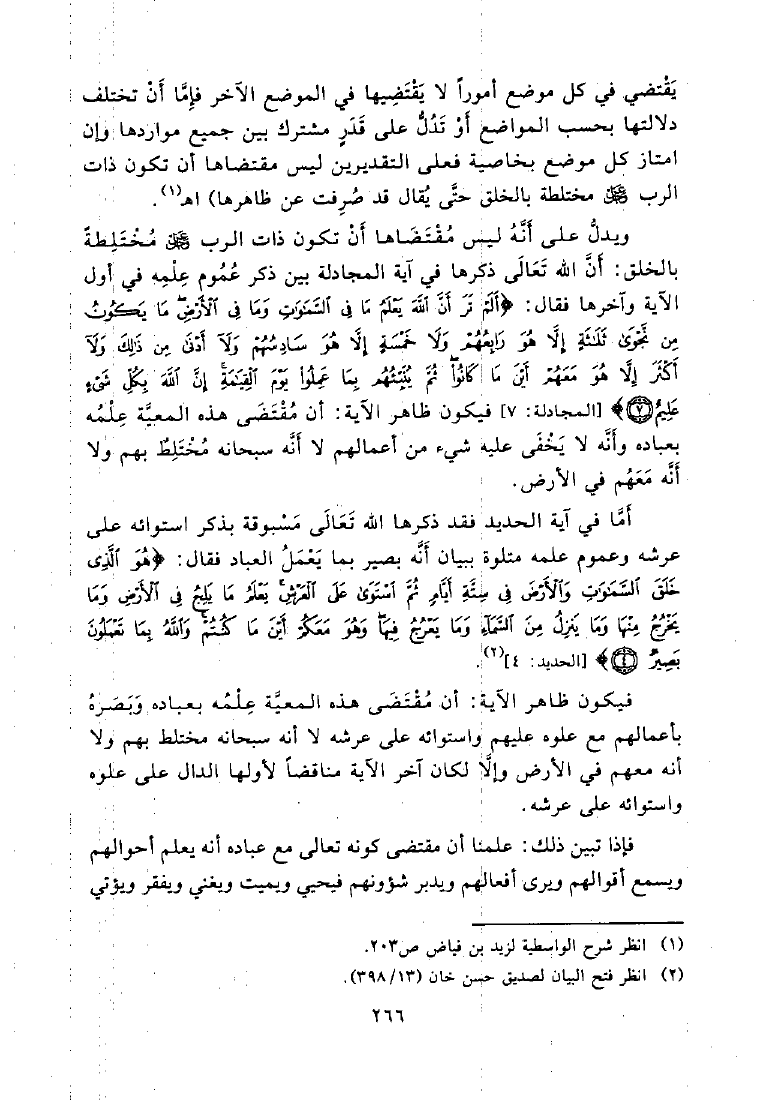 يَقْتضي في كل موضع أموراً لا يَقْتَضِيها في الموضع الآخر فإمَّا أَنْ تختلف
دلالتها بحسب المواضع أَوْ تَدُلُّ على قَدَرٍ مشترك بين جميع مواردها وإن
امتاز كل موضع بخاصية فعلى التقديرين ليس مقتضاها أن تكون ذات
الرب ﷻ مختلطة بالخلق حتَّى يُقال قد صُرِفت عن ظاهرها) اهـ(١).
ويدلُّ على أَنَّهُ ليس مُقْتَضَاها أَنْ تكون ذات الرب ﷻ مُخْتَلِطةً
بالخلق: أَنَّ الله تَعَالَى ذكرها في آية المجادلة بين ذكر عُمُوم عِلْمِه في أول
الآية وآخرها فقال: ﴿أَلَمْ تَرَ أَنَّ ٱللَّهَ يَعْلَمُ مَا فِى ٱلسَّمَٰوَٰتِ وَمَا فِى ٱلْأَرْضِۖ مَا يَكُونُ
مِن نَّجْوَىٰ ثَلَٰثَةٍ إِلَّا هُوَ رَابِعُهُمْ وَلَا خَمْسَةٍ إِلَّا هُوَ سَادِسُهُمْ وَلَآ أَدْنَىٰ مِن ذَٰلِكَ وَلَآ
أَكْثَرَ إِلَّا هُوَ مَعَهُمْ أَيْنَ مَا كَانُوا۟ۖ ثُمَّ يُنَبِّئُهُم بِمَا عَمِلُوا۟ يَوْمَ ٱلْقِيَٰمَةِۚ إِنَّ ٱللَّهَ بِكُلِّ شَىْءٍ
عَلِيمٌ ٧﴾ [المجادلة: ٧] فيكون ظاهر الآية: أن مُقْتَضَى هذه المعيَّة عِلْمُه
بعباده وأَنَّه لا يَخْفَى عليه شيء من أعمالهم لا أَنَّه سبحانه مُخْتَلِطٌ بهم ولا
أَنَّه مَعَهُم في الأرض.
أَمَّا في آية الحديد فقد ذكرها الله تَعَالَى مَسْبوقة بذكر استوائه على
عرشه وعموم علمه متلوة ببيان أَنَّه بصير بما يَعْمَلُ العباد فقال: ﴿هُوَ ٱلَّذِى
خَلَقَ ٱلسَّمَٰوَٰتِ وَٱلْأَرْضَ فِى سِتَّةِ أَيَّامٍ ثُمَّ ٱسْتَوَىٰ عَلَى ٱلْعَرْشِۚ يَعْلَمُ مَا يَلِجُ فِى ٱلْأَرْضِ وَمَا
يَخْرُجُ مِنْهَا وَمَا يَنزِلُ مِنَ ٱلسَّمَآءِ وَمَا يَعْرُجُ فِيهَاۖ وَهُوَ مَعَكُمْ أَيْنَ مَا كُنتُمْۚ وَٱللَّهُ بِمَا تَعْمَلُونَ
بَصِيرٌ ٤﴾ [الحديد: ٤](٢).
فيكون ظاهر الآية: أن مُقْتَضَى هذه المعيَّة عِلْمُه بعباده وَبَصَرَهُ
بأعمالهم مع علوه عليهم واستوائه على عرشه لا أنه سبحانه مختلط بهم ولا
أنه معهم في الأرض وإلَّا لكان آخر الآية مناقضاً لأولها الدال على علوه
واستوائه على عرشه.
فإذا تبين ذلك: علمنا أن مقتضى كونه تعالى مع عباده أنه يعلم أحوالهم
ويسمع أقوالهم ويرى أفعالهم ويدبر شؤونهم فيحيي ويميت ويغني ويفقر ويؤتي
(١) انظر شرح الواسطية لزيد بن فياض ص٢٠٣.
(٢) انظر فتح البيان لصديق حسن خان (٣٩٨/١٣).
٢٦٦